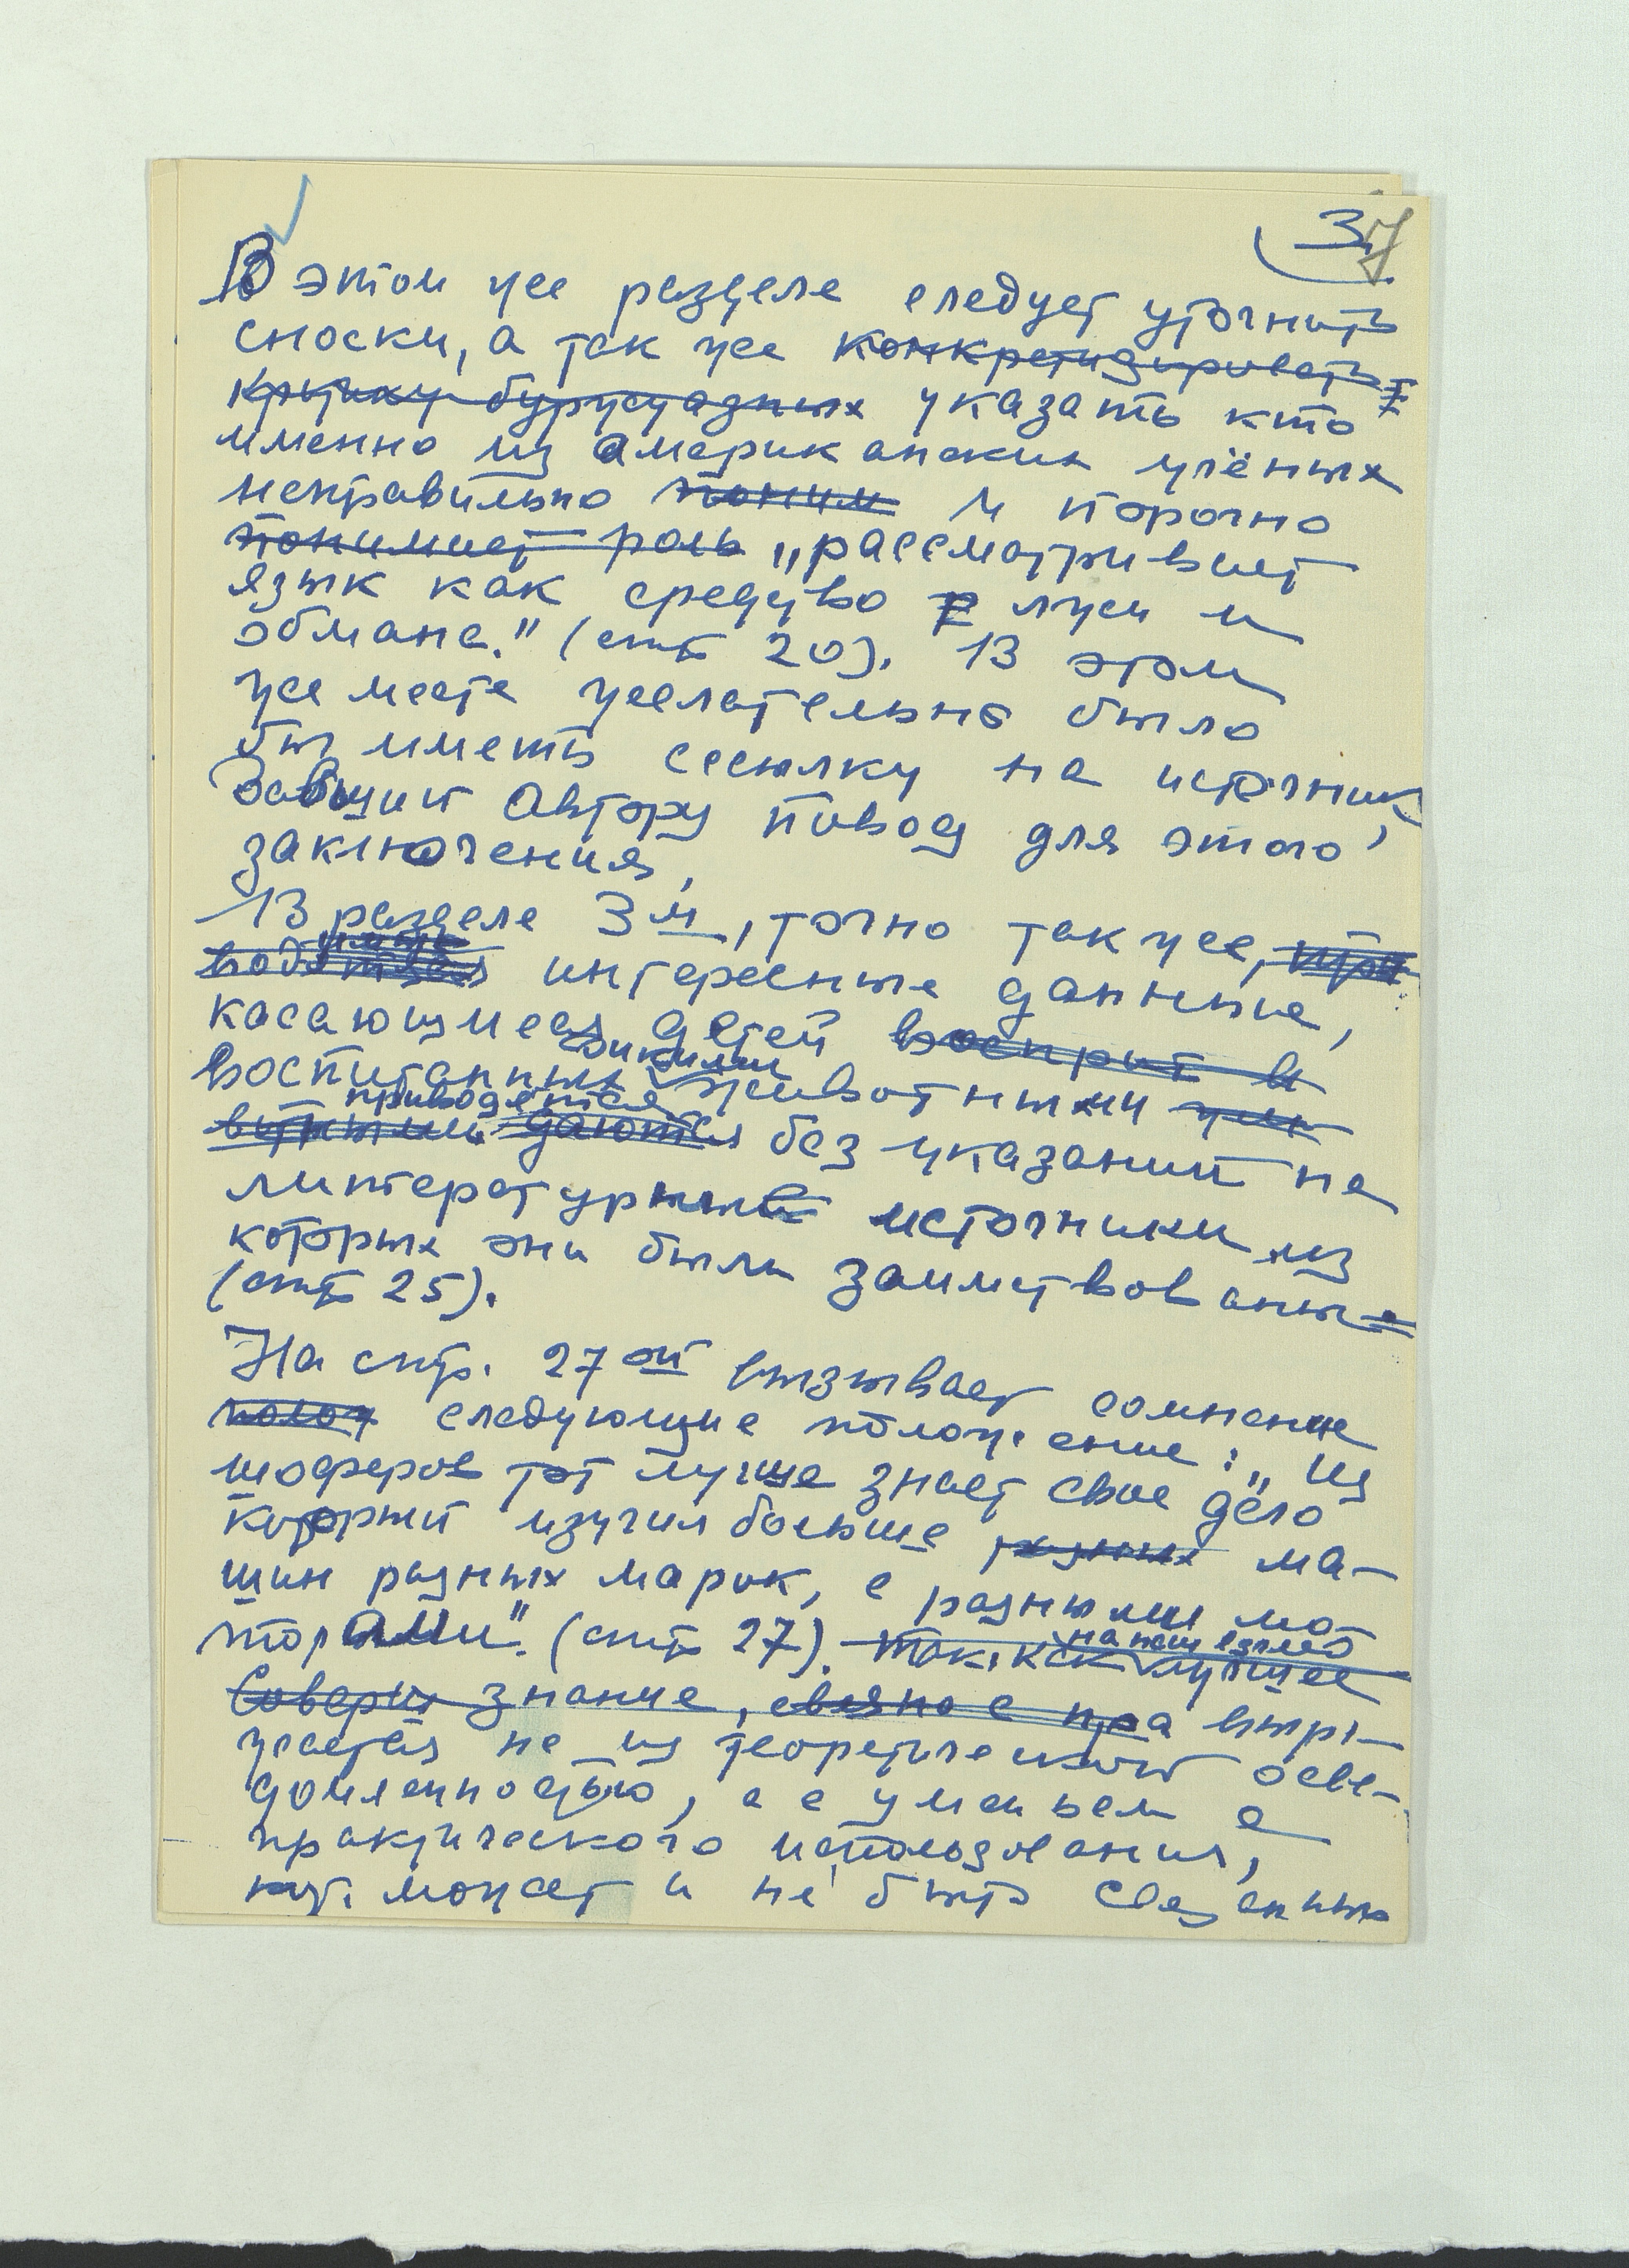 3
7
В этом же разделе следует уточнить
сноски, а так же конкретизировать
критику буржуазных указать кто
именно из американских учёных
неправильно поним и порочно
понимает роль „рассматривает
язык как средство лжи и
обмана." (стр 20). В этом
же месте желательно было
бы иметь ссылку на источник,
давший автору повод для этого
заключения,
В разделе 3м, точно так же, при
водятся интересные данные,
касающиеся детей восприт в
дикими
воспитанных животными
приводятся
даются без указаний на
литературные источники из
которых они были заимствованы
(стр 25).
На стр. 27ой вызывает сомнение
полож следующие положение: „Из
шоферов тот лучше знает свое дело
который изучил больше разных ма-
шин разных марок, с разными мо-
торами". (стр 27). Так как
на наш взгляд
лучшее
Соверш знание, связно с пра выра-
жается не из теоретической осве-
домленностью, а с уменьем а
практического использования,
кот. может и не быть связанным